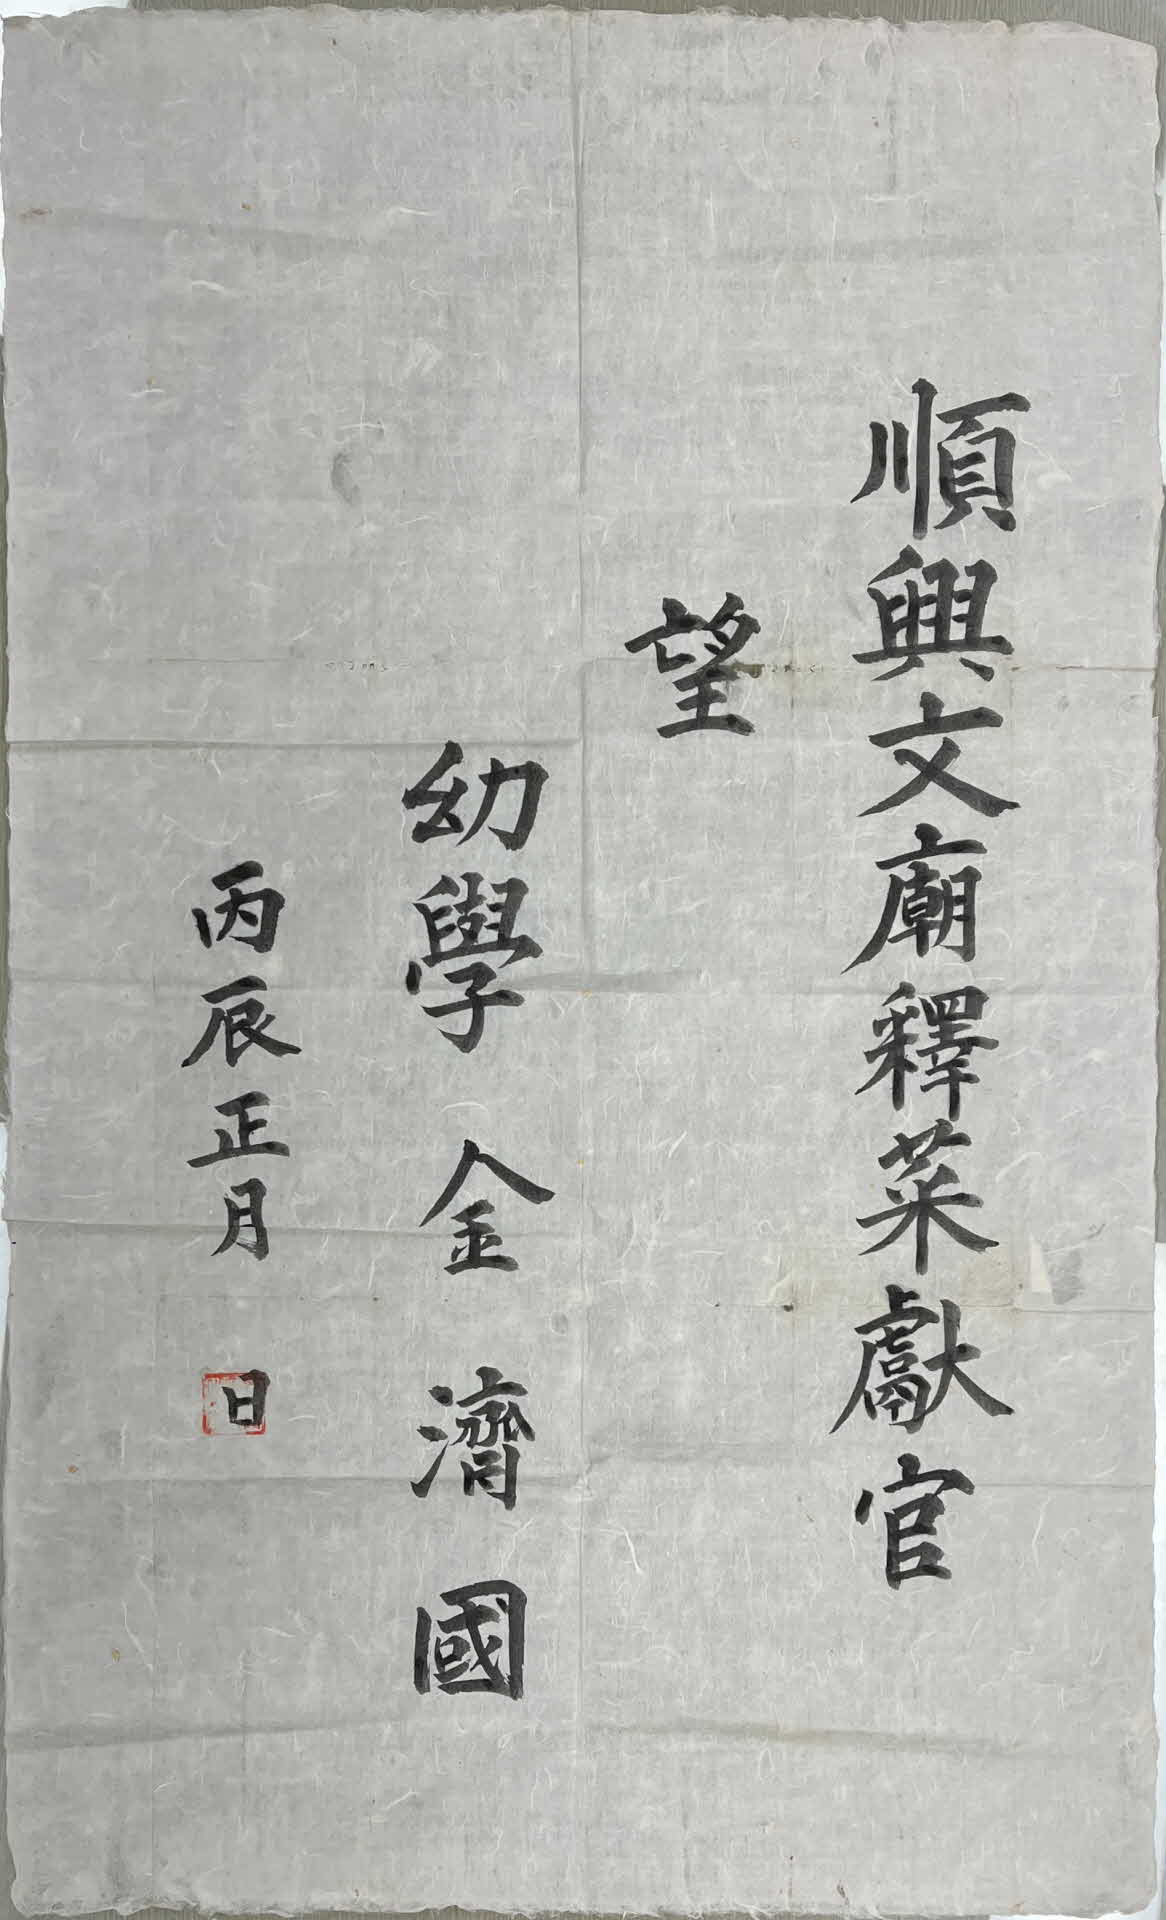 順興文廟釋菜獻官
望
幼學 金濟國
丙辰正月 日